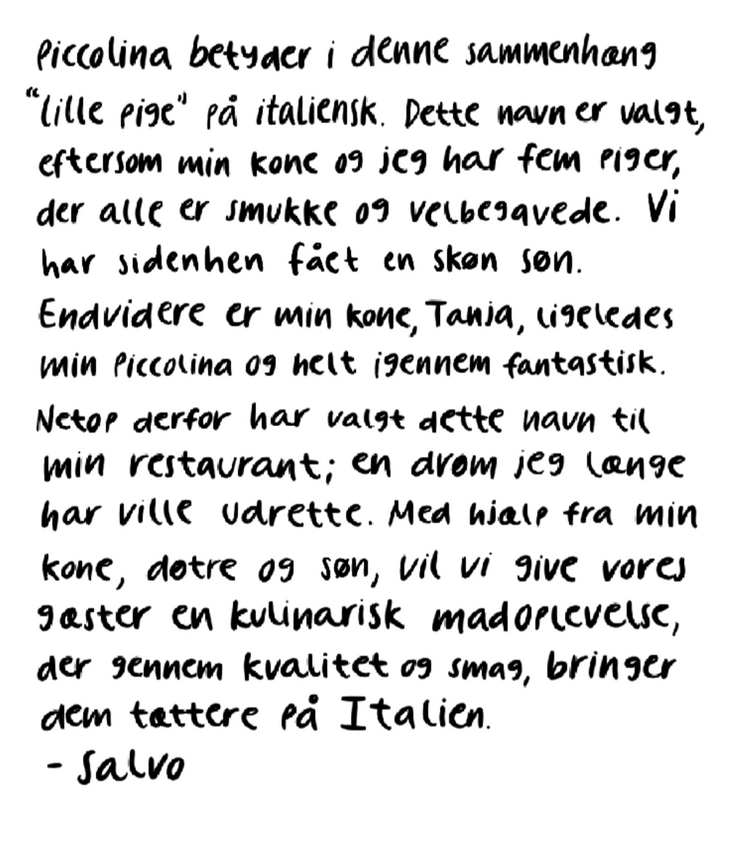 Piccolina betyder i denne sammenhæng
"lille pige" på italiensk. Dette navn er valgt,
eftersom min kone og jeg har fem piger,
der alle er smukke og velbegavede. Vi
har sidenhen fået en skøn søn.
Endvidere er min kone, Tanja, ligeledes
min Piccolina og helt igennem fantastisk.
Netop derfor har valgt dette navn til
min restaurant; en drøm jeg længe
har ville udrette. Med hjælp fra min
kone, døtre og søn, vil vi give vores
gæster en kulinarisk madoplevelse,
der gennem kvalitet og smag, bringer
dem tættere på Italien.
- Salvo